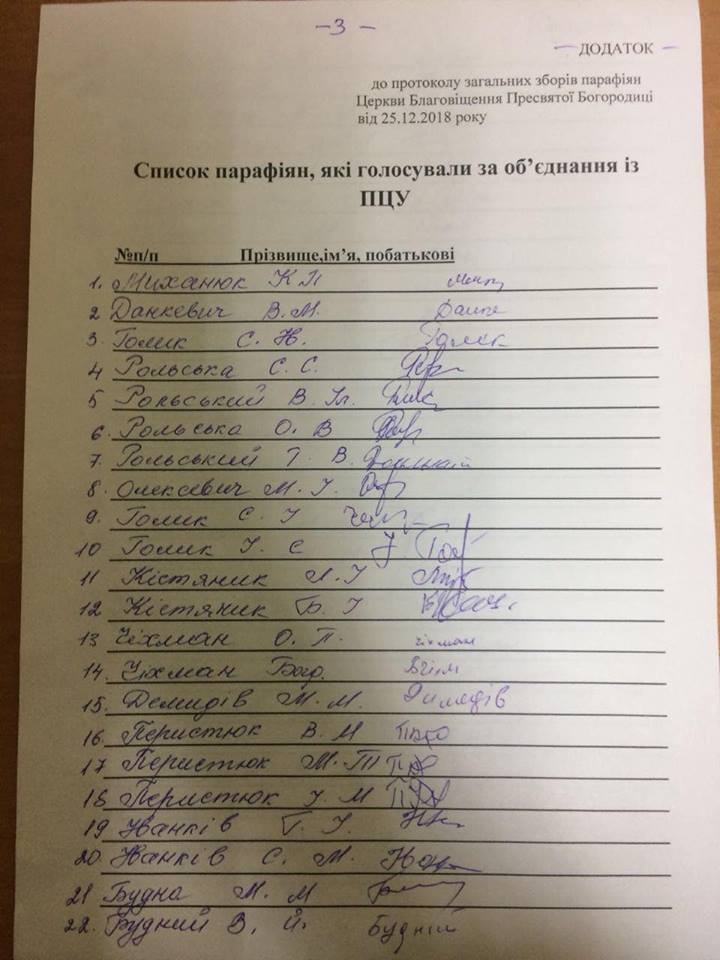 – 3 –
– ДОДАТОК –
до протоколу загальних зборів парафіян
Церкви Благовіщення Пресвятої Богородиці
від 25.12.2018 року
Список парафіян, які голосували за об’єднання із
ПЦУ
№п/п Прізвище,ім’я, побатькові
1. Миханюк К П
2 Данкевич В. М.
3. Голик С. Н. Голик
4 Рольська С. С.
5 Рольський В. Іг.
6. Рольська О. В
7. Рольський Т. В.
8. Олексевич М. І.
9. Голик С. І
10 Голик І. С Гол
11 Кістяник Л. І
12 Кістяник Б. І
13 Чіхман О. П. Чіхман
14. Чіхман Богд.
15. Демидів М. М. Димидів
16. Перистюк В. М
17 Перистюк М. Т
18 Перистюк І. М
19 Іванків Г. І.
20. Іванків С. М.
21 Будна М. М
22. Будний В. Й. Будній